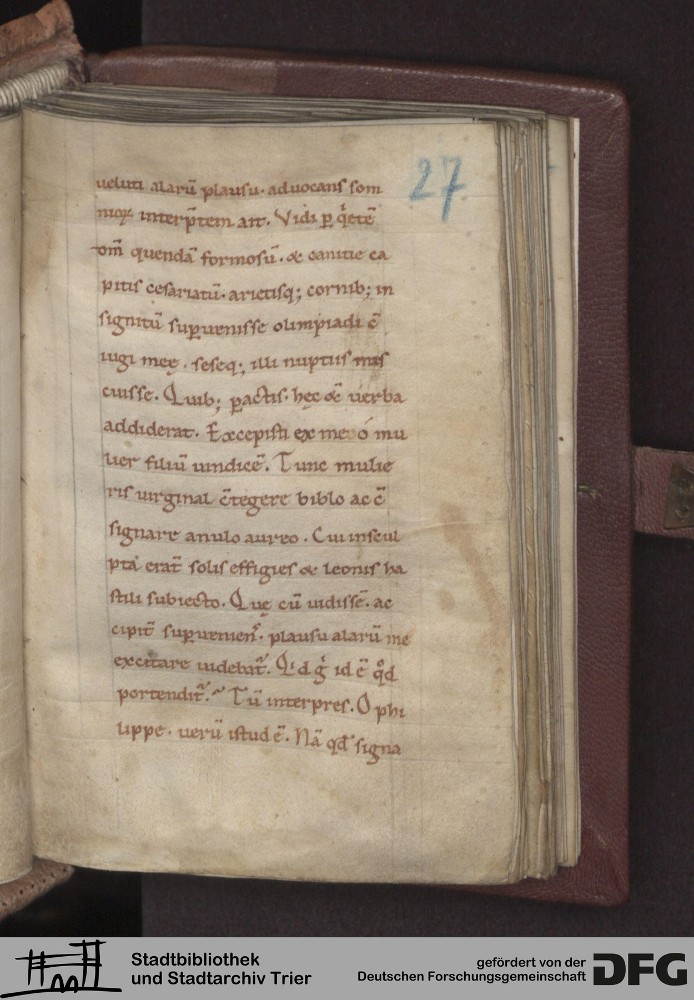 27
ueluti alarū plausu. aduocans som
niorꝝ interp̄tem ait. Vidi ꝑ q̇etē
om̄ quendā formosū. & canitie ca
pitis cesariatū. arietisq; cornib; in
signitū suꝑuenisse olimpiadi c̄
iugi meę. seseq; illi nuptiis mis
cuisse. Quib; ꝑactis. hęc & uerba
addiderat. Excepisti ex me ó mu
lier filiū uindicē. Tunc mulie
ris uirginal c̄tegere biblo ac c̄
signare anulo aureo. Cui inscul
pta erat̄ solis effigies & leonis ha
stili subiecto. Quę cū uidissē. ac
cipit̄ suꝑueniens. plausu alarū me
excitare uidebat̄. Qͥd ġ id ē qd̊
portendit̄. Tū interpres. O phi
lippe. uerū istud ē. Nā qd̄ signa
Stadtbibliothek
und Stadtarchiv Trier
gefördert von der
Deutschen Forschungsgemeinschaft
DFG